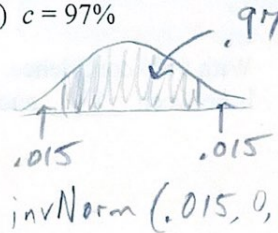 ) c = 97%
.97
.015
.015
invNorm (.015, 0,